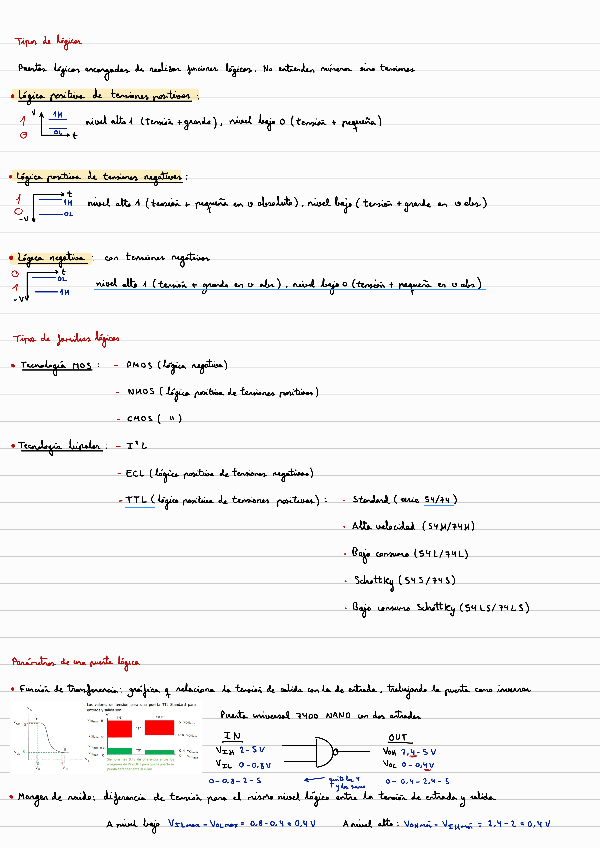 Tipos de lógicas
Puertas lógicas encargadas de realizar funciones lógicas. No entienden números sino tensiones
• Lógica positiva de tensiones positivas:
1 0 V 1H 0L t nivel alto 1 (tensión + grande), nivel bajo 0 (tensión + pequeña)
• Lógica positiva de tensiones negativas:
1 0 -V t 1H 0L nivel alto 1 (tensión + pequeña en v absoluto), nivel bajo (tensión + grande en v abs)
• Lógica negativa: con tensiones negativas
0 1 -V t 0L 1H nivel alto 1 (tensión + grande en v abs), nivel bajo 0 (tensión + pequeña en v abs)
Tipos de familias lógicas
• Tecnología MOS: - PMOS (lógica negativa)
- NMOS (lógica positiva de tensiones positivas)
- CMOS ( " )
• Tecnología bipolar: - I²L
- ECL (lógica positiva de tensiones negativas)
- TTL (lógica positiva de tensiones positivas): · Standard (serie 54/74)
· Alta velocidad (54H/74H)
· Bajo consumo (54L/74L)
· Schottky (54S/74S)
· Bajo consumo Schottky (54LS/74LS)
Parámetros de una puerta lógica
• Función de transferencia: gráfica q relaciona la tensión de salida con la de entrada, trabajando la puerta como inversor
Puerta universal 7400 NAND con dos entradas
IN OUT
VIH 2-5V VOH 2,4-5V
VIL 0-0,8V VOL 0-0,4V
0-0,8-2-5 0-0,4-2,4-5
• Margen de ruido: diferencia de tensión para el mismo nivel lógico entre la tensión de entrada y salida
A nivel bajo VILmax - VOLmax = 0,8-0,4 = 0,4V A nivel alto: VOHmin - VIHmin = 2,4-2 = 0,4V